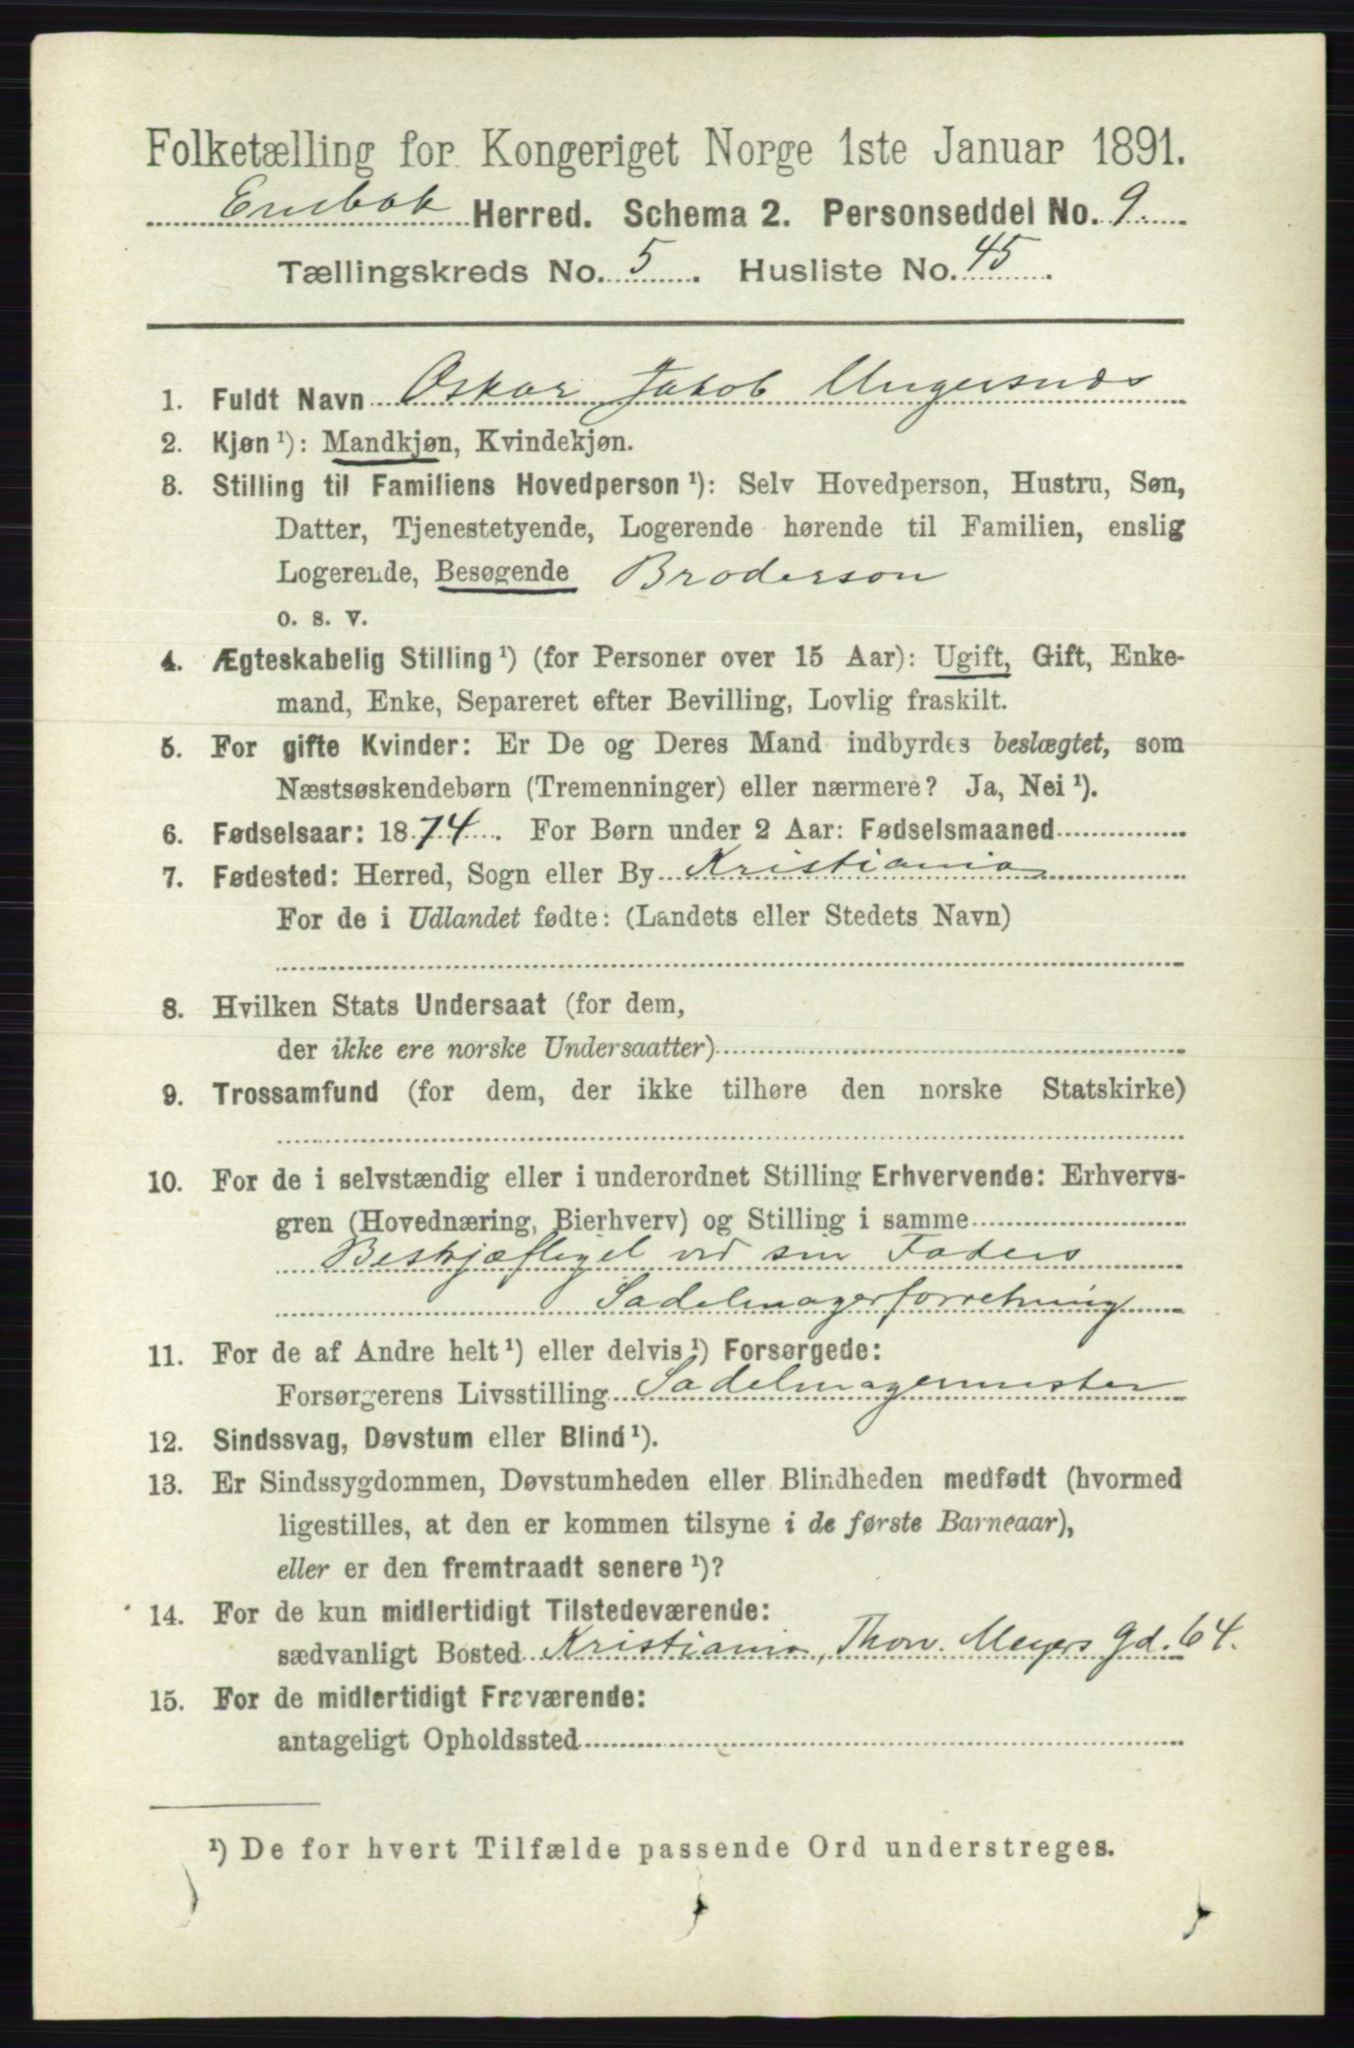 Folketælling for Kongeriget Norge 1ste Januar 1891.
Enebak Herred. Schema 2. Personseddel No. 9
Tællingskreds No. 5. Husliste No. 45.
1. Fuldt Navn Oskar Jakob Ungersnæs
2. Kjøn ¹): Mandkjøn, Kvindekjøn.
3. Stilling til Familiens Hovedperson ¹): Selv Hovedperson, Hustru, Søn,
Datter, Tjenestetyende, Logerende hørende til Familien, enslig
Logerende, Besøgende Broderson
o. s. v.
4. Ægteskabelig Stilling ¹) (for Personer over 15 Aar): Ugift, Gift, Enke-
mand, Enke, Separeret efter Bevilling, Lovlig fraskilt.
5. For gifte Kvinder: Er De og Deres Mand indbyrdes beslægtet, som
Næstsøskendebørn (Tremenninger) eller nærmere? Ja, Nei ¹).
6. Fødselsaar: 1874. For Børn under 2 Aar: Fødselsmaaned
7. Fødested: Herred, Sogn eller By Kristiania
For de i Udlandet fødte: (Landets eller Stedets Navn)
8. Hvilken Stats Undersaat (for dem,
der ikke ere norske Undersaatter)
9. Trossamfund (for dem, der ikke tilhøre den norske Statskirke)
10. For de i selvstændig eller i underordnet Stilling Erhvervende: Erhvervs-
gren (Hovednæring, Bierhverv) og Stilling i samme
Beskjæftiget ved sin Faders
Sadelmagerforretning
11. For de af Andre helt ¹) eller delvis ¹) Forsørgede:
Forsørgerens Livsstilling Sadelmagermester
12. Sindssvag, Døvstum eller Blind ¹).
13. Er Sindssygdommen, Døvstumheden eller Blindheden medfødt (hvormed
ligestilles, at den er kommen tilsyne i de første Barneaar),
eller er den fremtraadt senere ¹)?
14. For de kun midlertidigt Tilstedeværende:
sædvanligt Bosted Kristiania, Thorv. Meyers gd. 64.
15. For de midlertidigt Fraværende:
antageligt Opholdssted
¹) De for hvert Tilfælde passende Ord understreges.